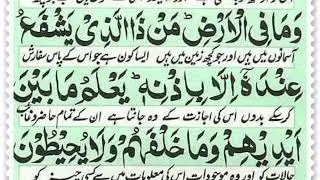 وَمَا فِي الْاَرْضِ ؕ مَنْ ذَا الَّذِيْ يَشْفَعُ
آسمانوں میں ہیں اور جو کچھ زمین میں ہیں ایسا کون ہے جو اس کے پاس سفارش
عِنْدَهٗۤ اِلَّا بِاِذْنِهٖ ؕ يَعْلَمُ مَا بَيْنَ
کرسکے بدوں اس کی اجازت کے وہ جانتا ہے ان کے تمام حاضر و غائب
اَيْدِيْهِمْ وَمَا خَلْفَهُمْ ۚ وَلَا يُحِيْطُوْنَ
حالات کو اور وہ موجودات اس کی معلومات میں سے کسی چیز کو